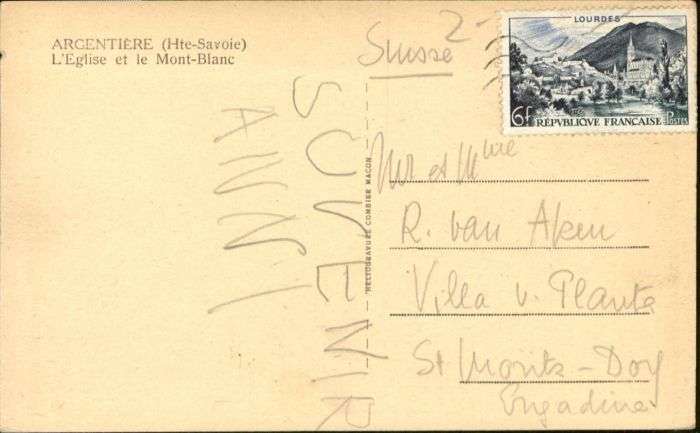 ARGENTIÈRE (Hte-Savoie)
L'Eglise et le Mont-Blanc
SOUVENIR
ANNI
HELIOGRAVURE COMBIER MACON
Suisse
2-
LOURDES
6f RÉPUBLIQUE FRANÇAISE POSTES
Mr et Mme
R. van Aken
Villa v. Planta
St Moritz - Dorf
Engadine